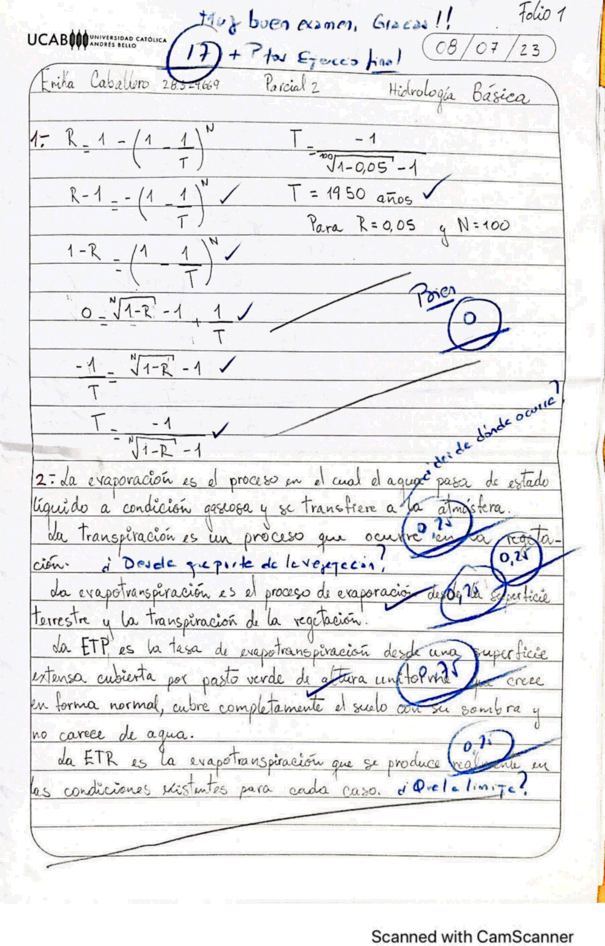 Muy buen examen, Gracias!!
Folio 1
UCAB UNIVERSIDAD CATÓLICA
ANDRÉS BELLO
17 + Ptos Ejercicio final
08/07/23
Erika Caballero
Parcial 2
Hidrología Básica
1- R = 1 - (1 - 1/T)^N
T = -1 / (^100√(1-0,05) - 1)
R-1 = -(1 - 1/T)^N
T = 1950 años
Para R=0,05 y N=100
1-R = (1 - 1/T)^N
0 = ^N√(1-R) - 1 + 1/T
Bien
0
-1/T = ^N√(1-R) - 1
T = -1 / (^N√(1-R) - 1)
desde dónde ocurre?
2- La evaporación es el proceso en el cual el agua pasa de estado
líquido a condición gaseosa y se transfiere a la atmósfera.
La transpiración es un proceso que ocurre en la vegeta-
ción. ¿Desde que parte de la vegetación?
0,25
La evapotranspiración es el proceso de evaporación desde la superficie
terrestre y la transpiración de la vegetación.
La ETP es la tasa de evapotranspiración desde una superficie
extensa cubierta por pasto verde de altura uniforme que crece
en forma normal, cubre completamente el suelo con su sombra y
no carece de agua.
La ETR es la evapotranspiración que se produce realmente en
las condiciones existentes para cada caso. ¿Que la limita?
Scanned with CamScanner